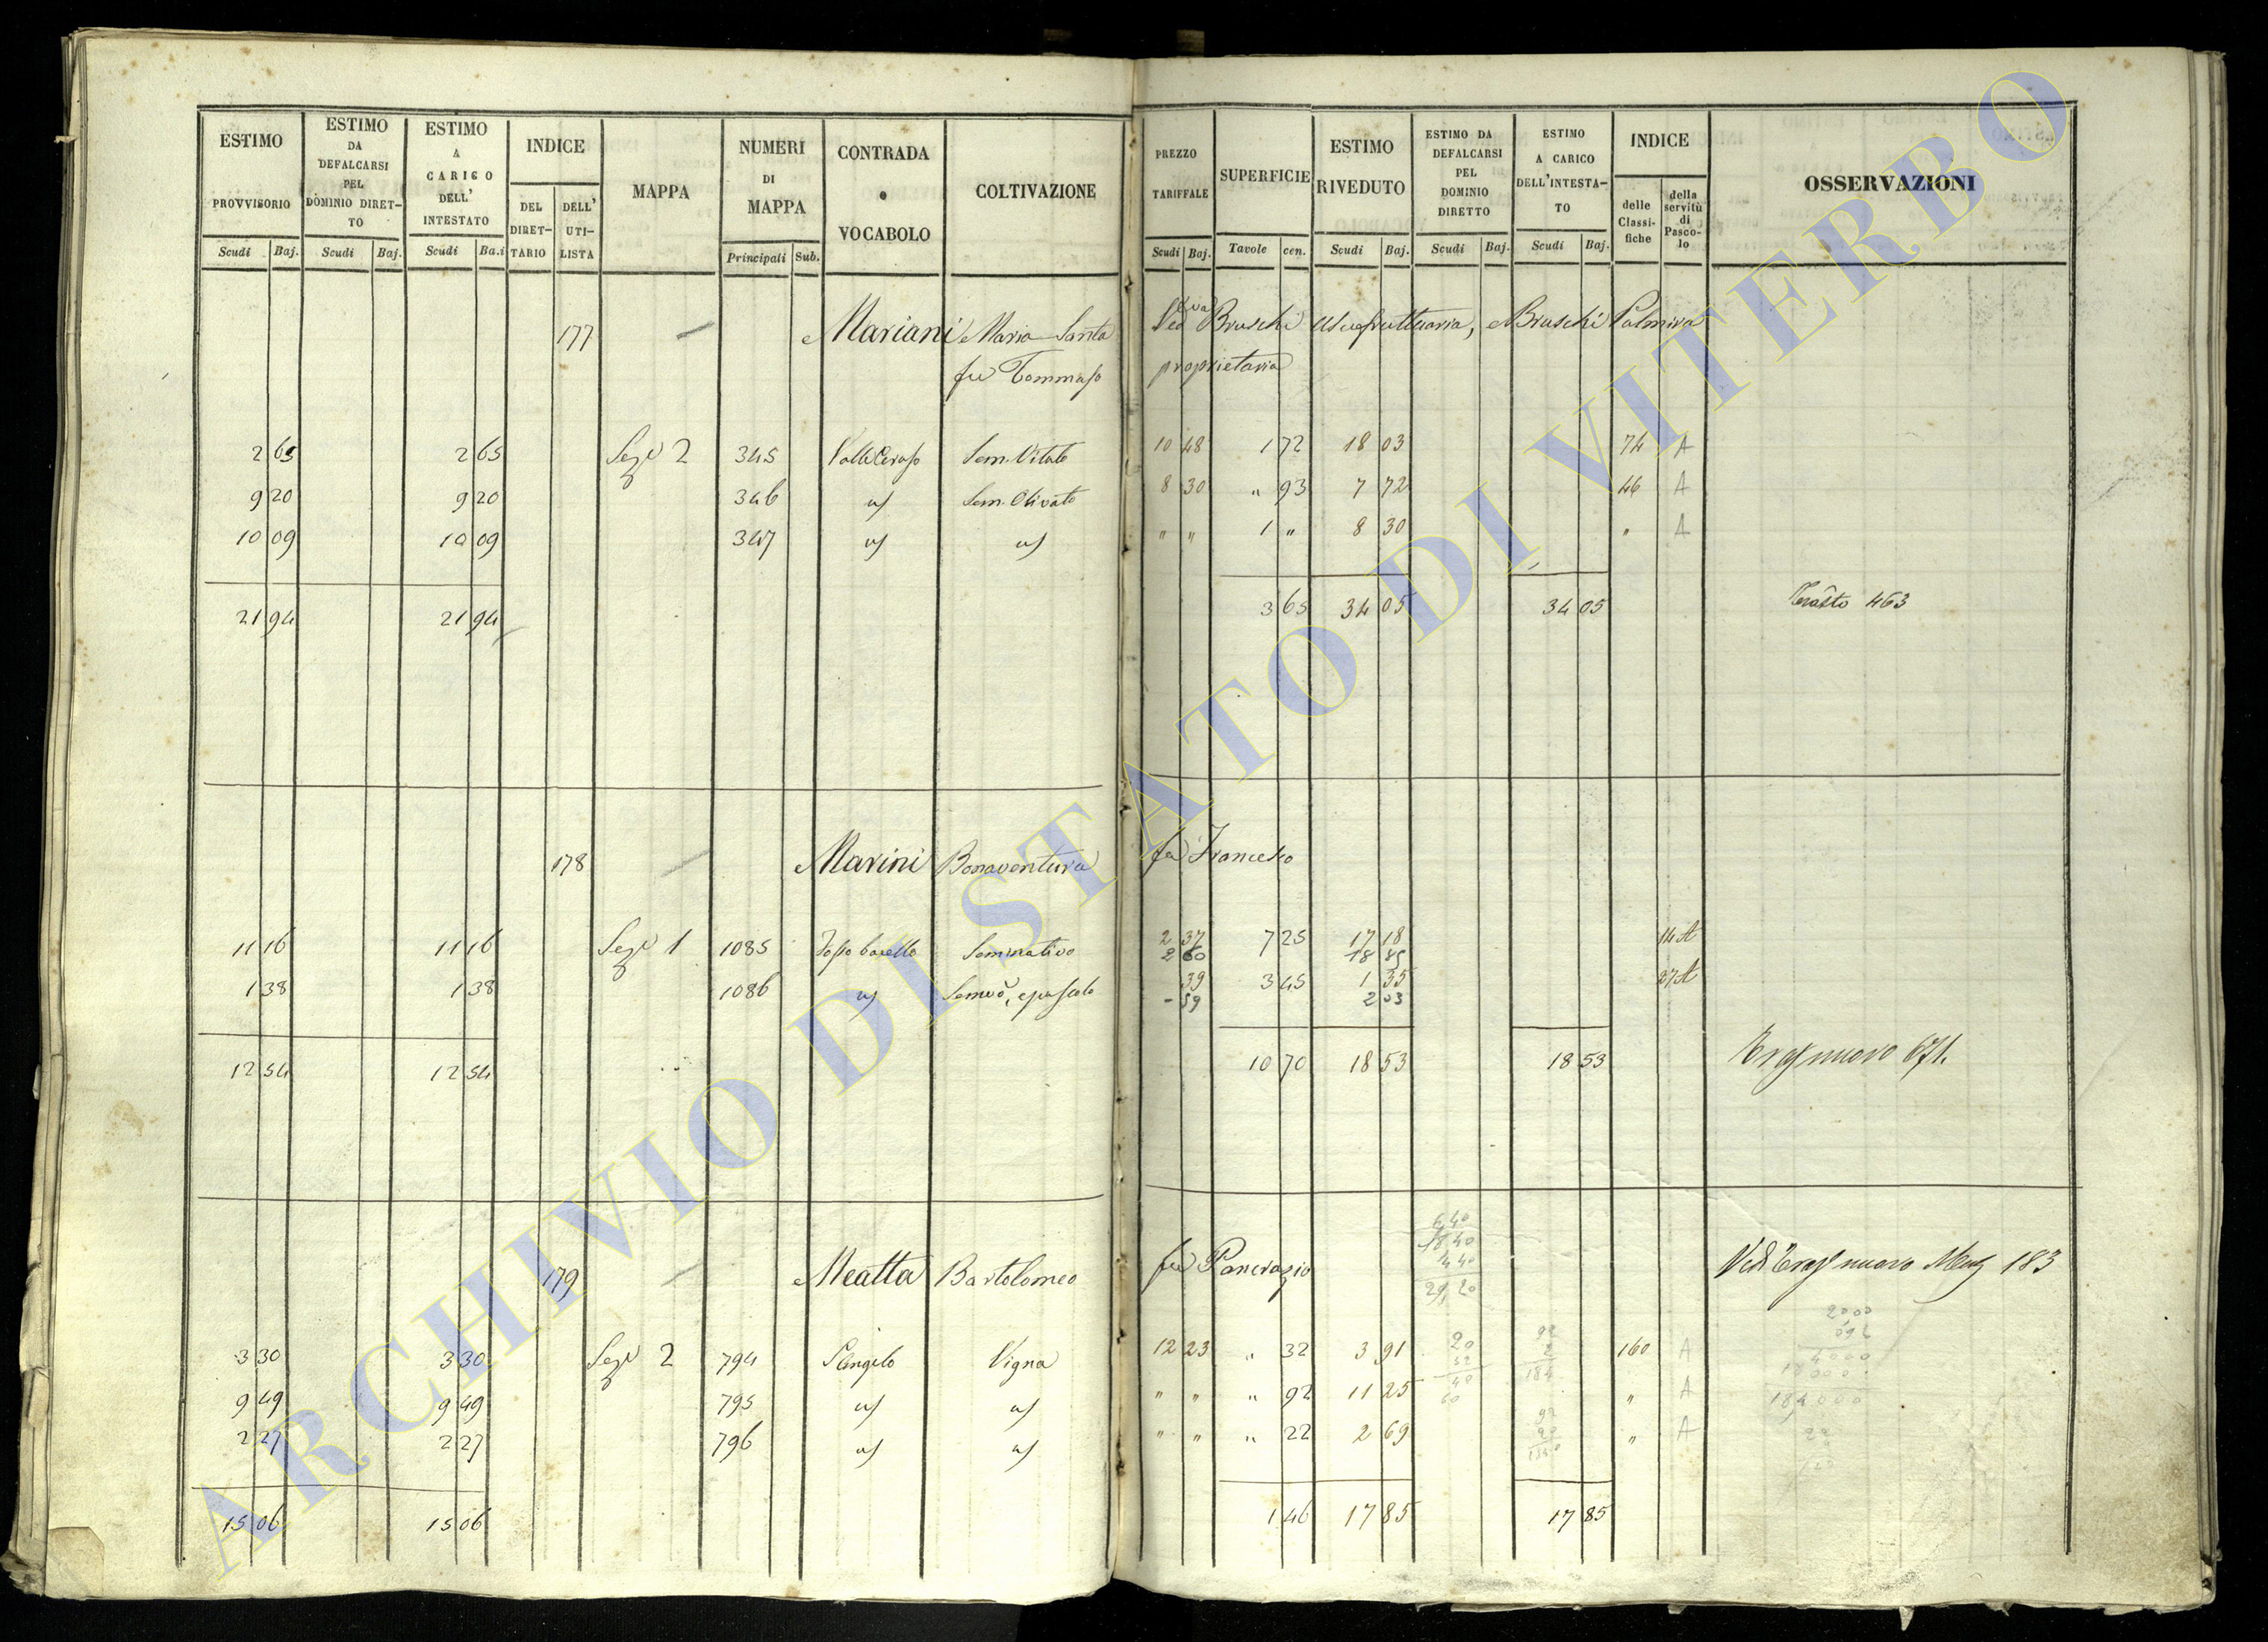 ESTIMO PROVVISORIO Scudi Baj.
ESTIMO DA DEFALCARSI PEL DOMINIO DIRET-TO Scudi Baj.
ESTIMO A CARICO DELL' INTESTATO Scudi Ba.i
INDICE DEL DIRET-TARIO DELL' UTI-LISTA
MAPPA
NUMERI DI MAPPA Principali Sub.
CONTRADA o VOCABOLO
COLTIVAZIONE
PREZZO TARIFFALE Scudi Baj.
SUPERFICIE Tavole cen.
ESTIMO RIVEDUTO Scudi Baj.
ESTIMO DA DEFALCARSI PEL DOMINIO DIRETTO Scudi Baj.
ESTIMO A CARICO DELL'INTESTA-TO Scudi Baj.
INDICE delle Classi-fiche della servitù di Pasco-lo
OSSERVAZIONI
177 Mariani Maria Santa Ved va Bruschi Usufruttuaria, Bruschi Palmira
fu Tommaso proprietaria
2 65 2 65 Sez e 2 345 Valle Ceraso Sem. Vitato 10 48 1 72 18 03 74 A
9 20 9 20 346 " Sem. Olivato 8 30 " 93 7 72 46 A
10 09 10 09 347 " " " " 1 " 8 30 " A
21 94 21 94 3 65 34 05 34 05 463
178 Marini Bonaventura fu Francesco
11 16 11 16 Sez e 1 1085 Seminativo 2 37 7 25 17 18 14 A
2 60 18 85
1 38 1 38 1086 " e pascolo 39 3 45 1 35 27 A
- 59 2 03
12 54 12 54 10 70 18 53 18 53 nuovo 671.
179 Meatta Bartolomeo fu Pancrazio Vedi nuovo 183
3 30 3 30 Sez e 2 794 S. Angelo Vigna 12 23 " 32 3 91 160 A
9 49 9 49 795 " " " " " 92 11 25 " A
2 27 2 27 796 " " " " " 22 2 69 " A
15 06 15 06 1 46 17 85 17 85
ARCHIVIO DI STATO DI VITERBO